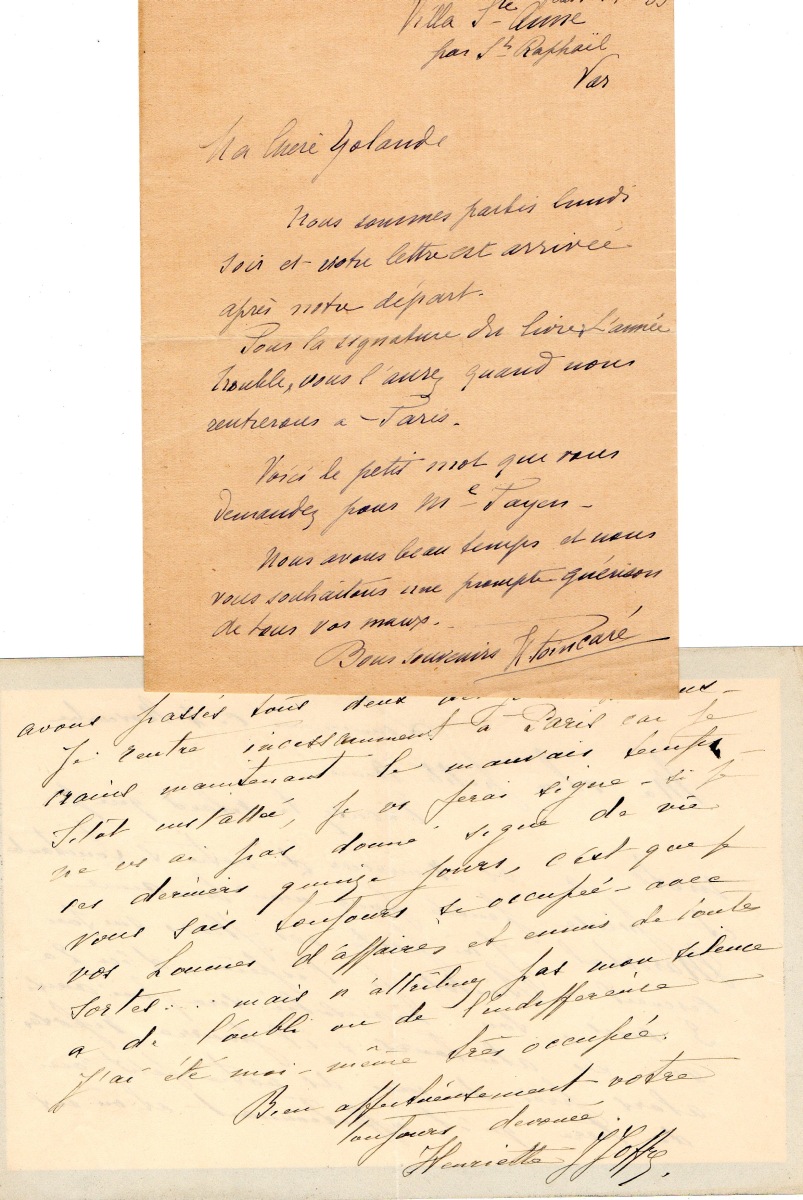 Villa Ste Anne
par St Raphaël
Var
Ma chère Yolande
Nous sommes partis lundi
soir et votre lettre est arrivée
après notre départ.
Pour la signature du livre, L'année
trouble, vous l'aurez quand nous
rentrerons a Paris.
Voici le petit mot que vous
demandez pour Me Payen -
Nous avons beau temps et nous
vous souhaitons une prompte guérison
de tous vos maux. -
Bons souvenirs H Poincaré
avons passés tous deux
Je rentre incessamment à Paris car je
crains maintenant le mauvais temps
Sitôt installée, je vs ferai signe - si je
ne vs ai pas donné signe de vie
ces derniers quinze jours, c'est que je
vous sais toujours si occupée - avec
vos hommes d'affaires et ennuis de toutes
sortes... mais n'attribuez pas mon silence
a de l'oubli ou de l'indifférence -
J'ai été moi-même très occupée.
Bien affectueusement votre
toujours dévouée.
Henriette J Joffre.